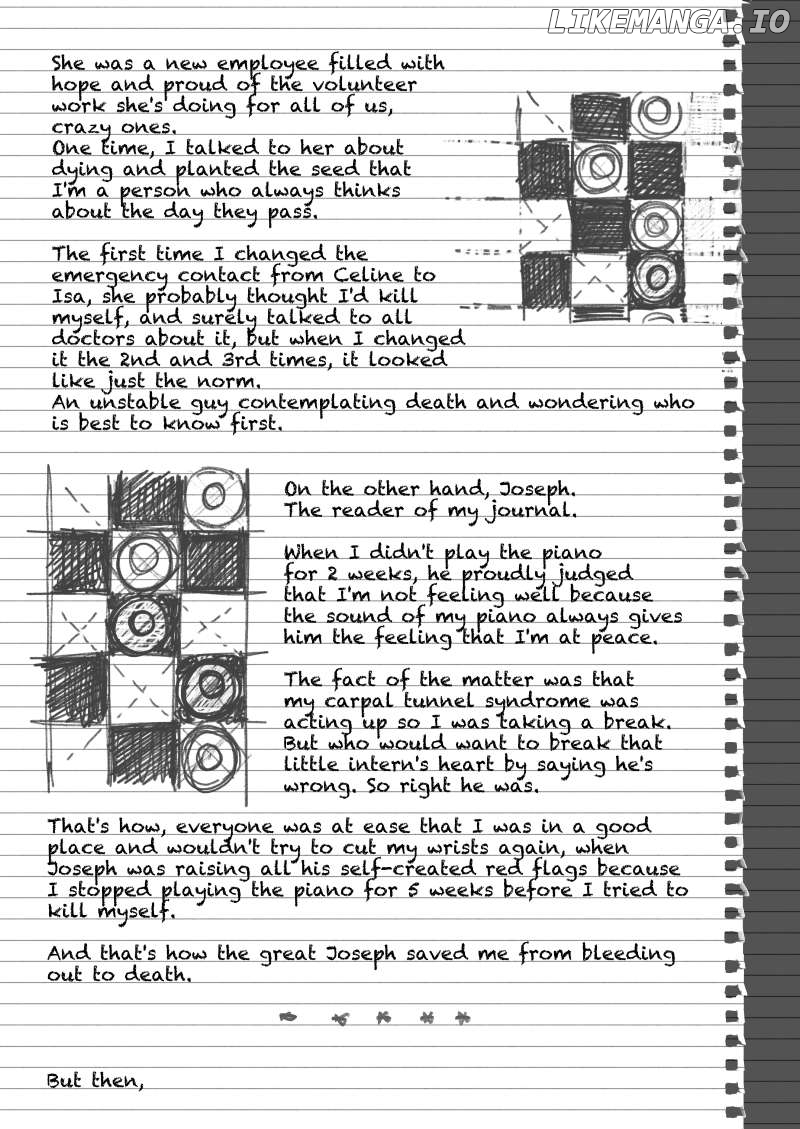 LIKEMANGA.IO
She was a new employee filled with
hope and proud of the volunteer
work she's doing for all of us,
crazy ones.
One time, I talked to her about
dying and planted the seed that
I'm a person who always thinks
about the day they pass.
The first time I changed the
emergency contact from Celine to
Isa, she probably thought I'd kill
myself, and surely talked to all
doctors about it, but when I changed
it the 2nd and 3rd times, it looked
like just the norm.
An unstable guy contemplating death and wondering who
is best to know first.
On the other hand, Joseph.
The reader of my journal.
When I didn't play the piano
for 2 weeks, he proudly judged
that I'm not feeling well because
the sound of my piano always gives
him the feeling that I'm at peace.
The fact of the matter was that
my carpal tunnel syndrome was
acting up so I was taking a break.
But who would want to break that
little intern's heart by saying he's
wrong. So right he was.
That's how, everyone was at ease that I was in a good
place and wouldn't try to cut my wrists again, when
Joseph was raising all his self-created red flags because
I stopped playing the piano for 5 weeks before I tried to
kill myself.
And that's how the great Joseph saved me from bleeding
out to death.
But then,